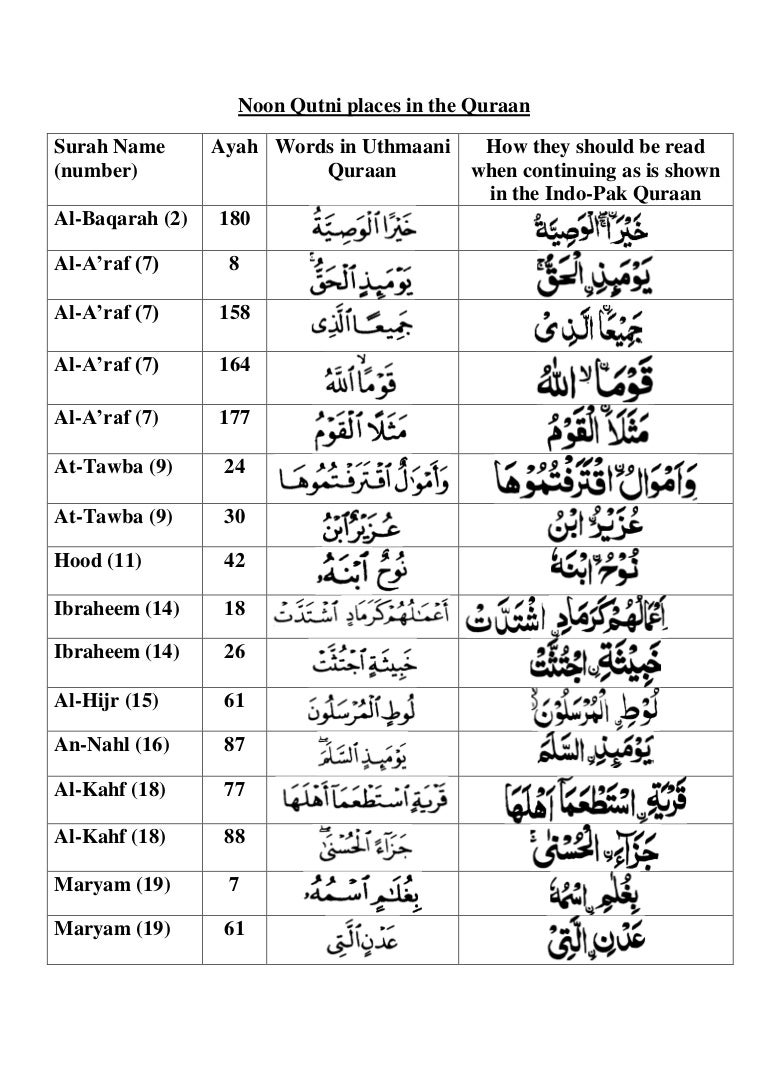 Noon Qutni places in the Quraan
Surah Name (number) Ayah Words in Uthmaani Quraan How they should be read when continuing as is shown in the Indo-Pak Quraan
Al-Baqarah (2) 180 خَيْرًا ٱلْوَصِيَّةُ خَيْرَاۨ الْوَصِيَّةُ
Al-A’raf (7) 8 يَوْمَئِذٍ ٱلْحَقُّ ۚ يَوْمَئِذِ ۨالْحَقُّ ۚ
Al-A’raf (7) 158 جَمِيعًا ٱلَّذِى جَمِيْعَاۨ الَّذِىْ
Al-A’raf (7) 164 قَوْمًا ۙ ٱللَّهُ قَوْمَاۨ ۙ اللّٰهُ
Al-A’raf (7) 177 مَثَلًا ٱلْقَوْمُ مَثَلَاۨ الْقَوْمُ
At-Tawba (9) 24 وَأَمْوَٰلٌ ٱقْتَرَفْتُمُوهَا وَاَمْوَالُ ۨاقْتَرَفْتُمُوْهَا
At-Tawba (9) 30 عُزَيْرٌ ٱبْنُ عُزَيْرُ ۨابْنُ
Hood (11) 42 نُوحٌ ٱبْنَهُۥ نُوْحُ ۨابْنَهٗ
Ibraheem (14) 18 أَعْمَٰلُهُمْ كَرَمَادٍ ٱشْتَدَّتْ اَعْمَالُهُمْ كَرَمَادِ ۨاشْتَدَّتْ
Ibraheem (14) 26 خَبِيثَةٍ ٱجْتُثَّتْ خَبِيْثَةِ ۨاجْتُثَّتْ
Al-Hijr (15) 61 لُوطٍ ٱلْمُرْسَلُونَ لُوْطِ ۨالْمُرْسَلُوْنَ ۙ
An-Nahl (16) 87 يَوْمَئِذٍ ٱلسَّلَمَ ۖ يَوْمَئِذِ ۨالسَّلَمَ
Al-Kahf (18) 77 قَرْيَةٍ ٱسْتَطْعَمَآ أَهْلَهَا قَرْيَةِ ۨاسْتَطْعَمَاۤ اَهْلَهَا
Al-Kahf (18) 88 جَزَآءً ٱلْحُسْنَىٰ ۖ جَزَآءَ ۨالْحُسْنٰى ۚ
Maryam (19) 7 بِغُلَٰمٍ ٱسْمُهُۥ بِغُلٰمِ ۨاسْمُهٗ
Maryam (19) 61 عَدْنٍ ٱلَّتِى عَدْنِ ۨالَّتِىْ